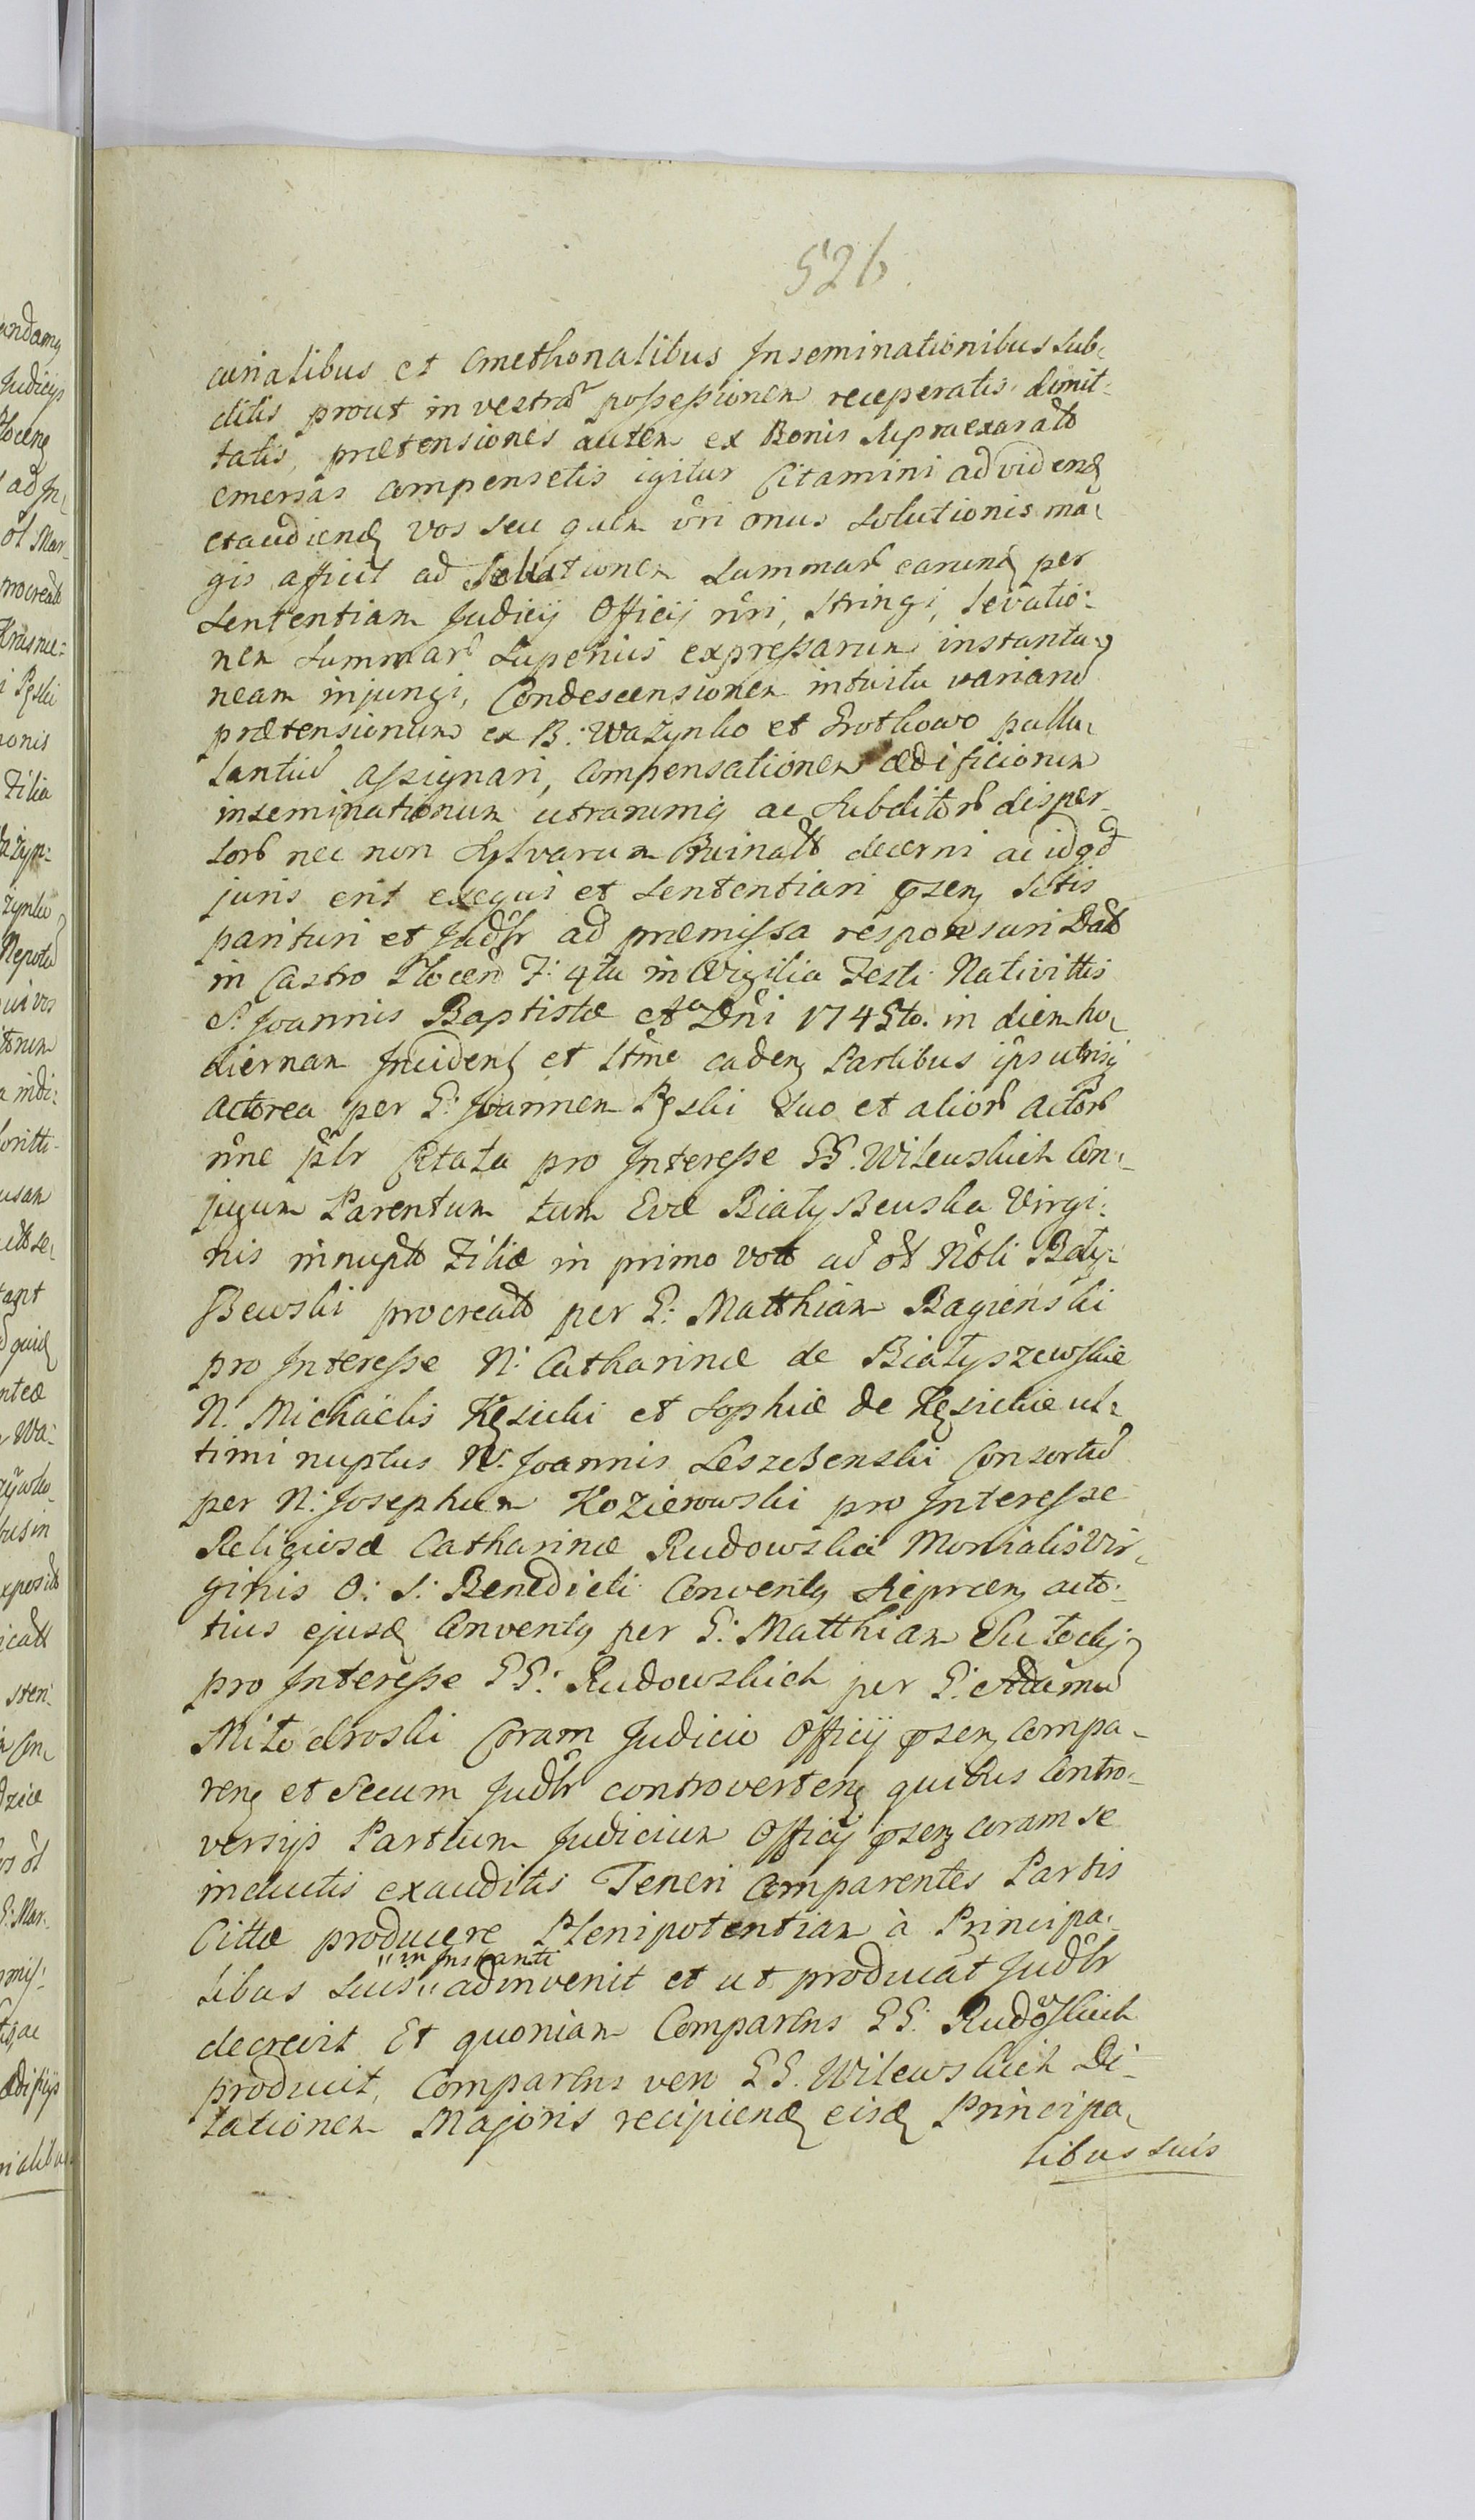 526
curialibus et Cmethonalibus Inseminationibus Sub-
ditis prout in vestram possessionem receperatis dimit-
tatis, prætensiones autem ex Bonis supraexaratis
emersas compensetis igitur Citamini ad videndum
et audiendum vos seu quem vri onus solutionis ma-
gis afficit ad Solutionem Summar earundem per
Sententiam Judicij Officij nri, stringi, levatio-
nem Summar Superius expressarum instanta-
neam injungi, Condescensionem intuitu variarum
prætensionum ex B: Ważynko et Srotkowo pullu-
lantium assignari, Compensationem ædificiorum
inseminationum utrarumq ac Subditor disper-
sor nec non Sylvarum Ruinatar decerni ac id qd
juris erit exequi et Sententiari psens Sitis
parituri et Judlr ad præmissa responsuri Dat
in Castro Plocen F: 4ta in Vigilia Festi Nativittis
S. Joannis Baptistæ A Dni 1745to. in diem ho-
diernam Incidens et ltme cadens Partibus ips utrisq
actorea per G: Joannem Pęski Suo et alior actor
nne plr Citata pro Interesse GG. Wilewskich Con-
jugum Parentum tum Evæ Białyszewska Virgi-
nis innuptæ Filiæ in primo voto ad ol Nobli Biały-
szewski procreatæ per G: Matthiam Bagieński
pro Interesse N: Catharinæ de Białyszewskie
N. Michaelis Kęsicki et Sophiæ de Kęsickie ul-
timi nuptus N. Joannis Leszczenski Consortum
per N: Josephum Kozierowski pro Interesse
Religiosæ Catharinæ Rudowska Monialis Vir-
ginis O: S: Benedicti Conventus Sieprcen ac to-
tius ejusdem Conventus per G: Matthiam
pro Interesse GG: Rudowskich per G: Adamum
Mitodroski Coram Judicio Officij psen compa-
ren et Secum Judlr controverten quibus Contro-
versijs Partium Judicium Officij psen coram se
inductis exauditis Teneri Comparentes Partis
Cittæ producere Plenipotentiam à Principa-
libus suis "in Instanti" adinvenit et ut producat Judlr
decrevit Et quoniam Comparens GG. Rudowskich
produxit, Comparens vero GG. Wilewskich Di-
lationem Majoris recipiend eisd Principa-
libus suis